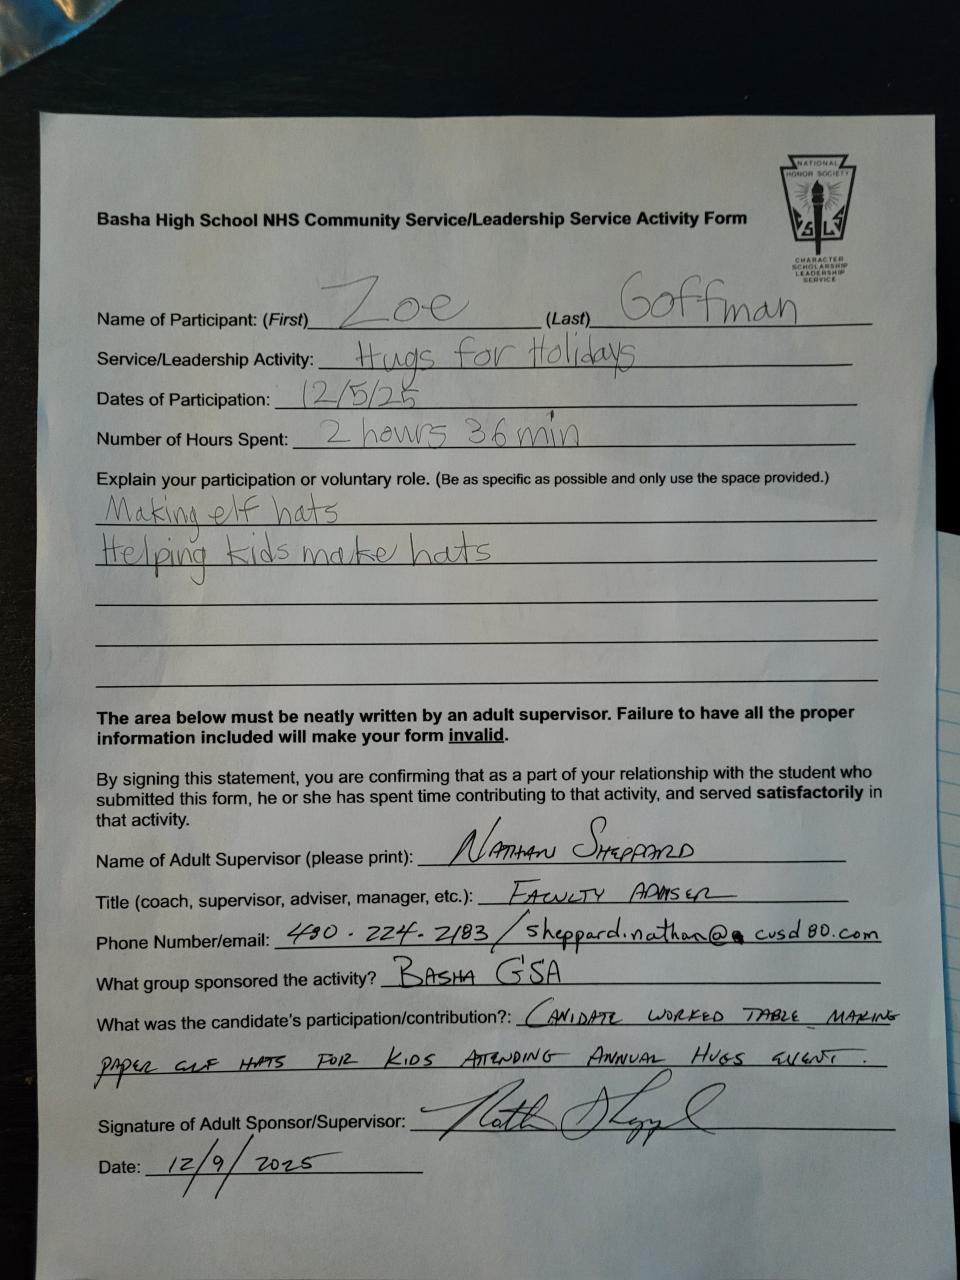 NATIONAL
HONOR SOCIETY
S L S
CHARACTER
SCHOLARSHIP
LEADERSHIP
SERVICE
Basha High School NHS Community Service/Leadership Service Activity Form
Name of Participant: (First) Zoe (Last) Goffman
Service/Leadership Activity: Hugs for Holidays
Dates of Participation: 12/5/25
Number of Hours Spent: 2 hours 36 min
Explain your participation or voluntary role. (Be as specific as possible and only use the space provided.)
Making elf hats
Helping kids make hats
The area below must be neatly written by an adult supervisor. Failure to have all the proper
information included will make your form invalid.
By signing this statement, you are confirming that as a part of your relationship with the student who
submitted this form, he or she has spent time contributing to that activity, and served satisfactorily in
that activity.
Name of Adult Supervisor (please print): NATHAN SHEPPARD
Title (coach, supervisor, adviser, manager, etc.): FACULTY ADVISER
Phone Number/email: 480 - 224 - 2183 / sheppard.nathan@cusd80.com
What group sponsored the activity? BASHA GSA
What was the candidate's participation/contribution?: CANIDATE WORKED TABLE MAKING
PAPER ELF HATS FOR KIDS ATTENDING ANNUAL HUGS EVENT.
Signature of Adult Sponsor/Supervisor:
Date: 12/9/2025